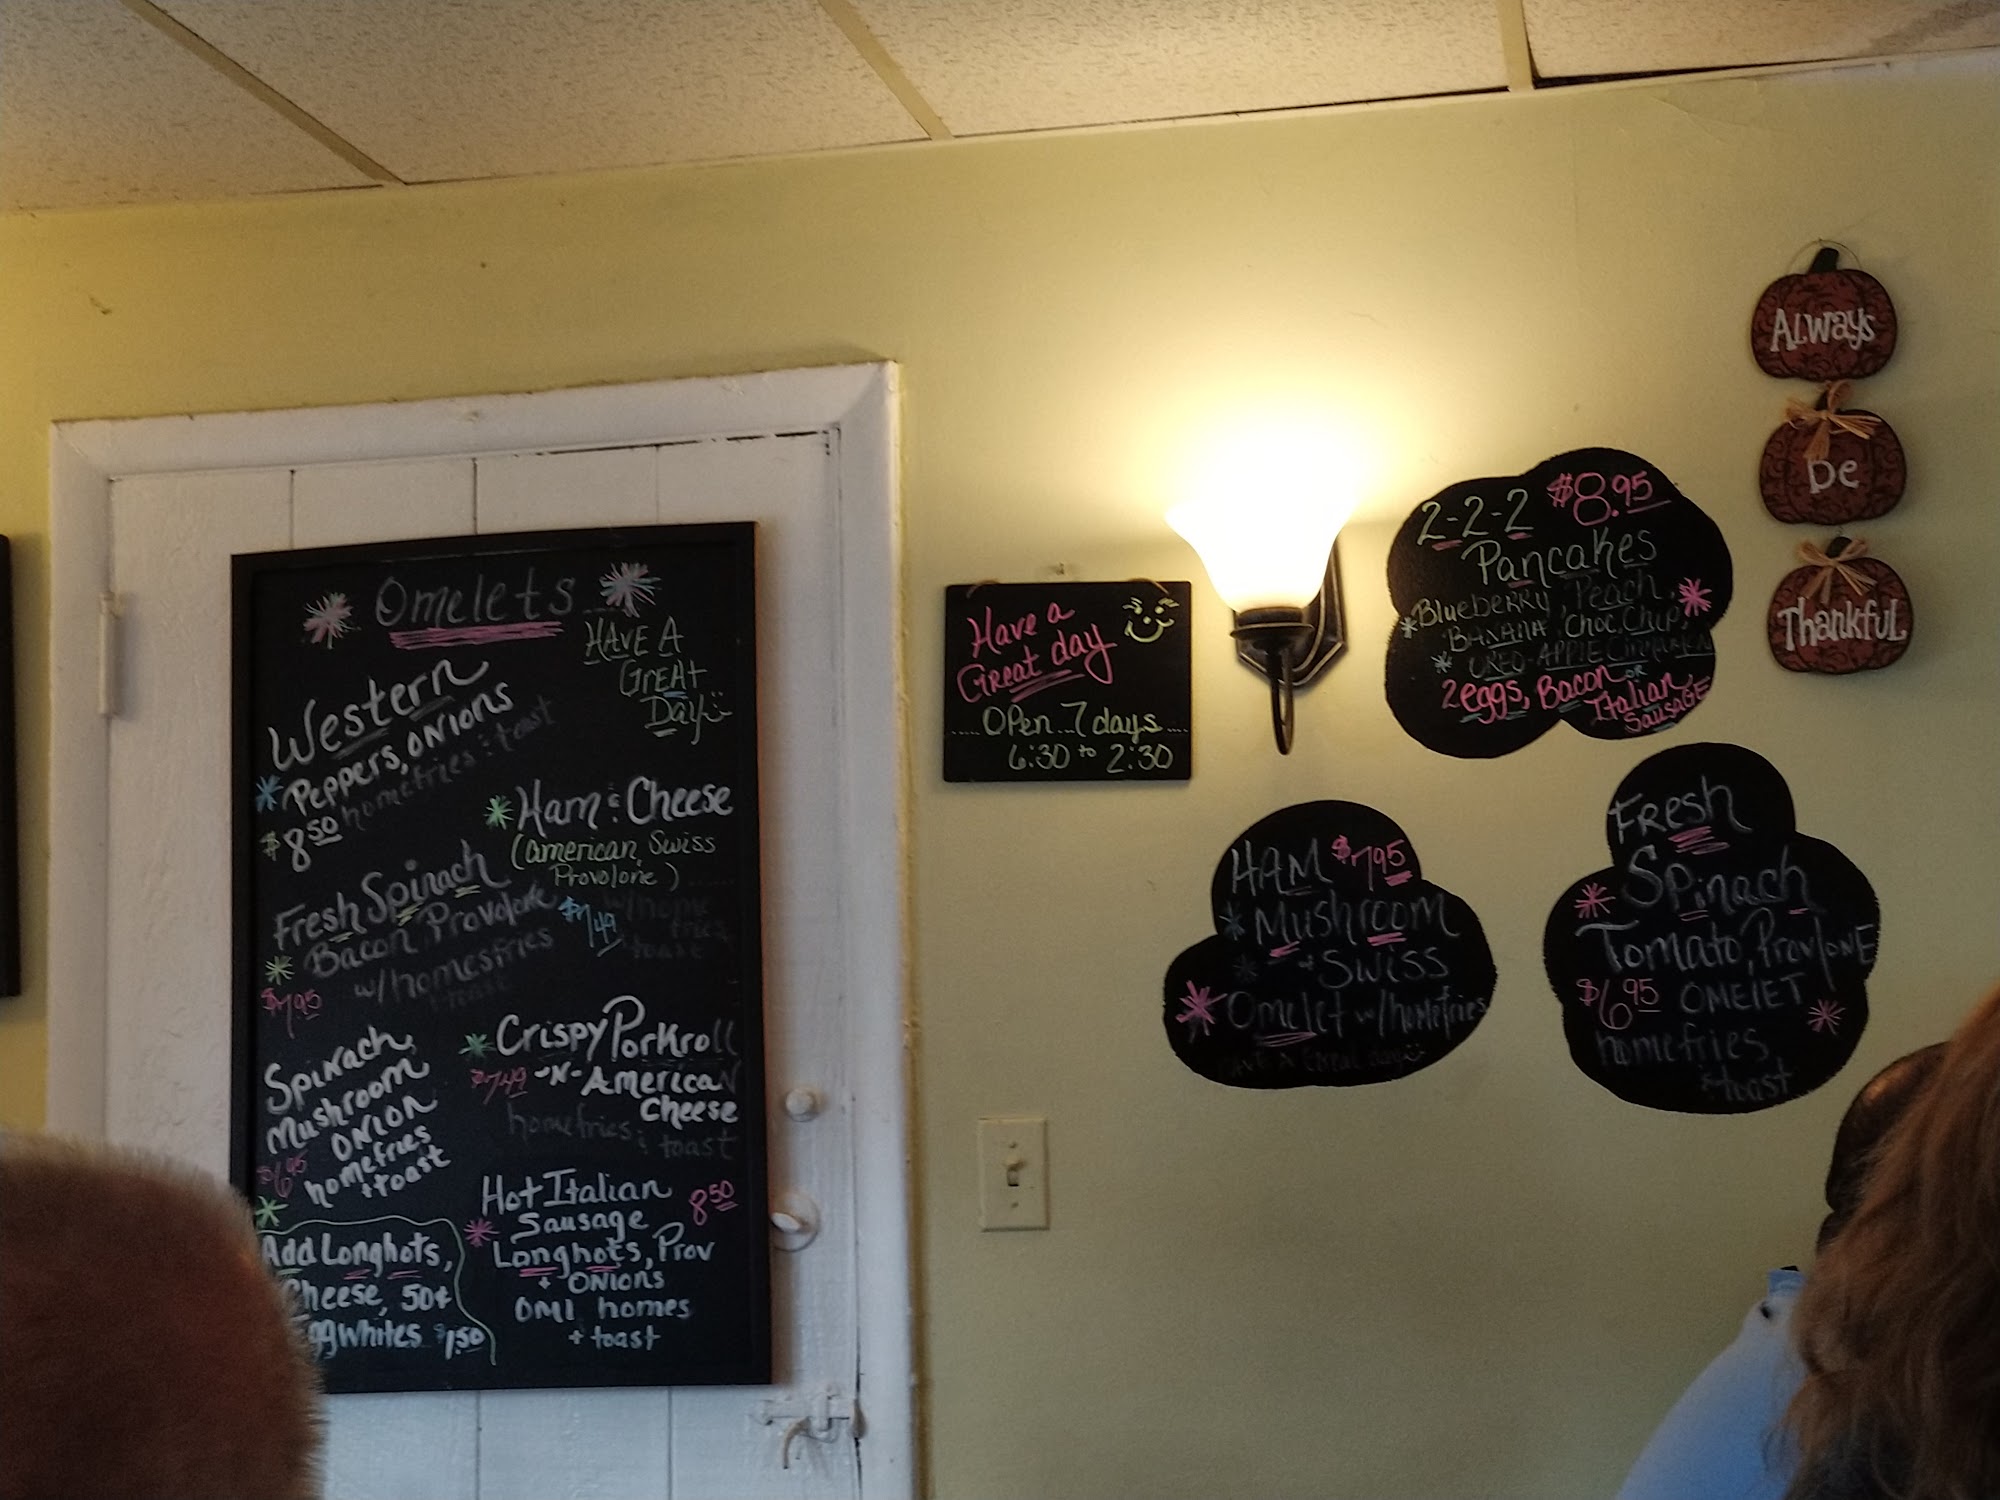 Omelets
HAVE A
GrEAt
Day
Western
Peppers, ONIONS
homefries & toast
$8.50
Ham & Cheese
(american, Swiss
Provolone)
$7.49 w/home
fries
toast
Fresh Spinach
Bacon, Provolone
w/homefries
toast
$7.95
Crispy Porkroll
$7.49 -N- American
Cheese
homefries & toast
Spinach,
Mushroom
ONION
homefries
+ toast
$6.95
Hot Italian 8.50
Sausage
Longhots, Prov
+ ONIONS
OMl homes
+ toast
Add Longhots,
Cheese, 50¢
ggwhites $1.50
Have a
Great day
OPen 7 days
6:30 to 2:30
2-2-2 $8.95
Pancakes
BlueberRY, Peach,
BANANA, Choc. Chip,
OREO-APPLE Cinnamon
2 eggs, Bacon OR
Italian
Sausage
HAM $7.95
Mushroom
+ Swiss
Omelet w/homefries
Have A Great day
FResh
Spinach
Tomato, ProvloNE
$6.95 OMElET
homefries
& toast
Always
be
Thankful